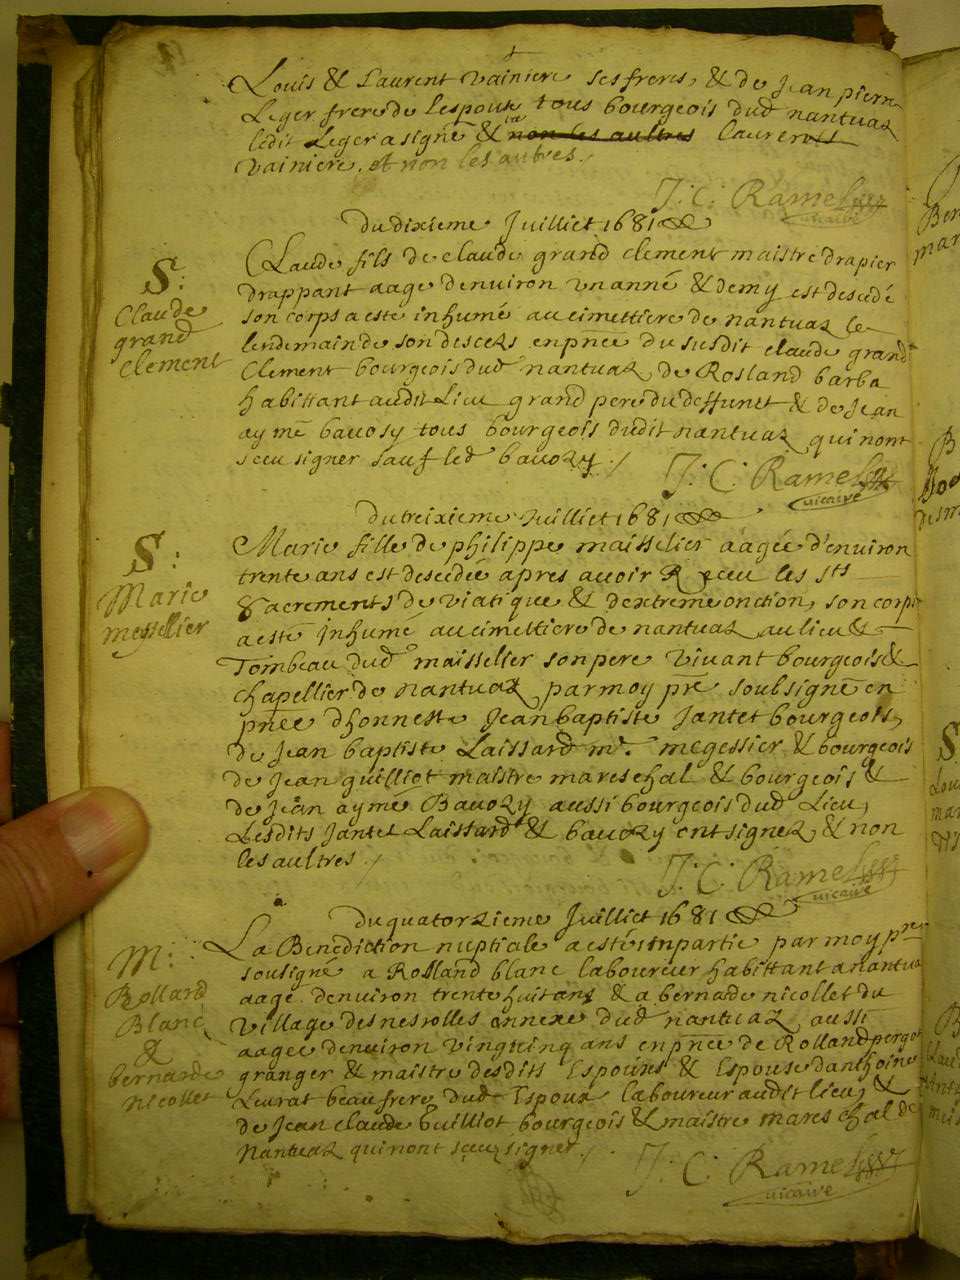 Louis & Laurent vainiere ses freres, & de Jean pierre
Leger frere de lespouse tous bourgeois dud nantuaz
ledit Leger a signé & non les aultres laurent
vainiere. et non les autres.
J: C: Ramel
vicaire
Du dixieme Juilliet 1681
S:
Claude
grand
Clement
Claude fils de claude grand clement maistre drapier
drappant aage denviron un anné & demy est decedé
son corps a esté inhumé au cimettiere de nantuaz le
lendemain de son desces en pnce du susdit claude grand
Clement bourgeois dud nantuaz, de Rosland barba
habittant audit Lieu grand pere du deffunct & de Jean
aymé bavozy tous bourgeois dudit nantuaz qui nont
sceu signer sauf led bavozy. /
J: C: Ramel
vicaire
Du treixieme Juilliet 1681
S:
Marie
messellier
Marie fille de philippe maisselier aagée d'environ
trente ans est decedée apres avoir Receu les sts
Sacrements de viatique & dextreme onction, son corps
a esté inhumé au cimettiere de nantuaz au lieu &
Tombeau dud maisselier son pere vivant bourgeois &
chapellier de nantuaz par moy pre soubsigné en
pnce dhonneste Jean baptiste Jantet bourgeois,
de Jean baptiste Laissard mr. megessier & bourgeois
de Jean guilliot maistre mareschal & bourgeois &
de Jean aymé Bavozy aussi bourgeois dud Lieu,
Lesdits Jantet Laissard & bavozy ont signez & non
les aultres. /
J: C: Ramel
vicaire
Du quatorzieme Juilliet 1681
M:
Rolland
Blanc
&
bernarde
nicollet
La Benediction nuptiale a esté inpartie par moy pre
sousigné a Rolland blanc laboureur habittant a nantua
aage denviron trente huit ans & a bernarde nicollet du
village des nesrolles annexe dud nantuaz aussi
aagee denviron vingt cinq ans en pnce de Rolland perçot
granger & maistre desdits Espoux & Espouse danthoine
Leurat beau frere dud Espoux laboureur audit lieu, &
de Jean claude Guilliot bourgeois & maistre mareschal de
Nantuaz qui nont sceu signer. /
J: C: Ramel
vicaire